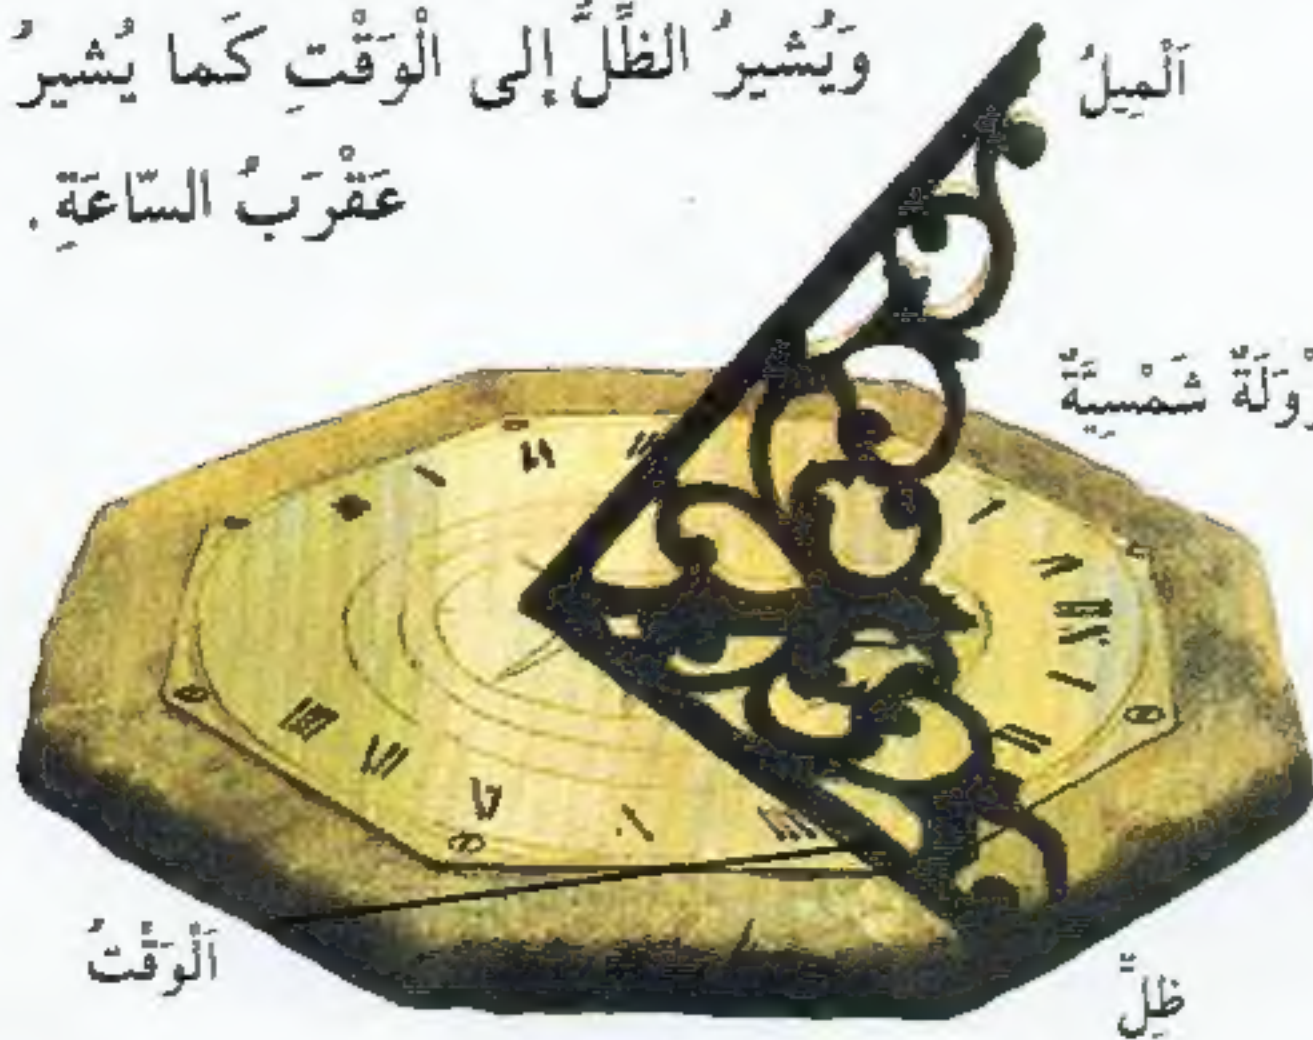 وَيُشيرُ الظِّلُّ إلى الْوَقْتِ كَما يُشيرُ
عَقْرَبُ السّاعَةِ.
اَلْمِيلُ
شَمْسِيَّةٌ
اَلْوَقْتُ
ظِلّ